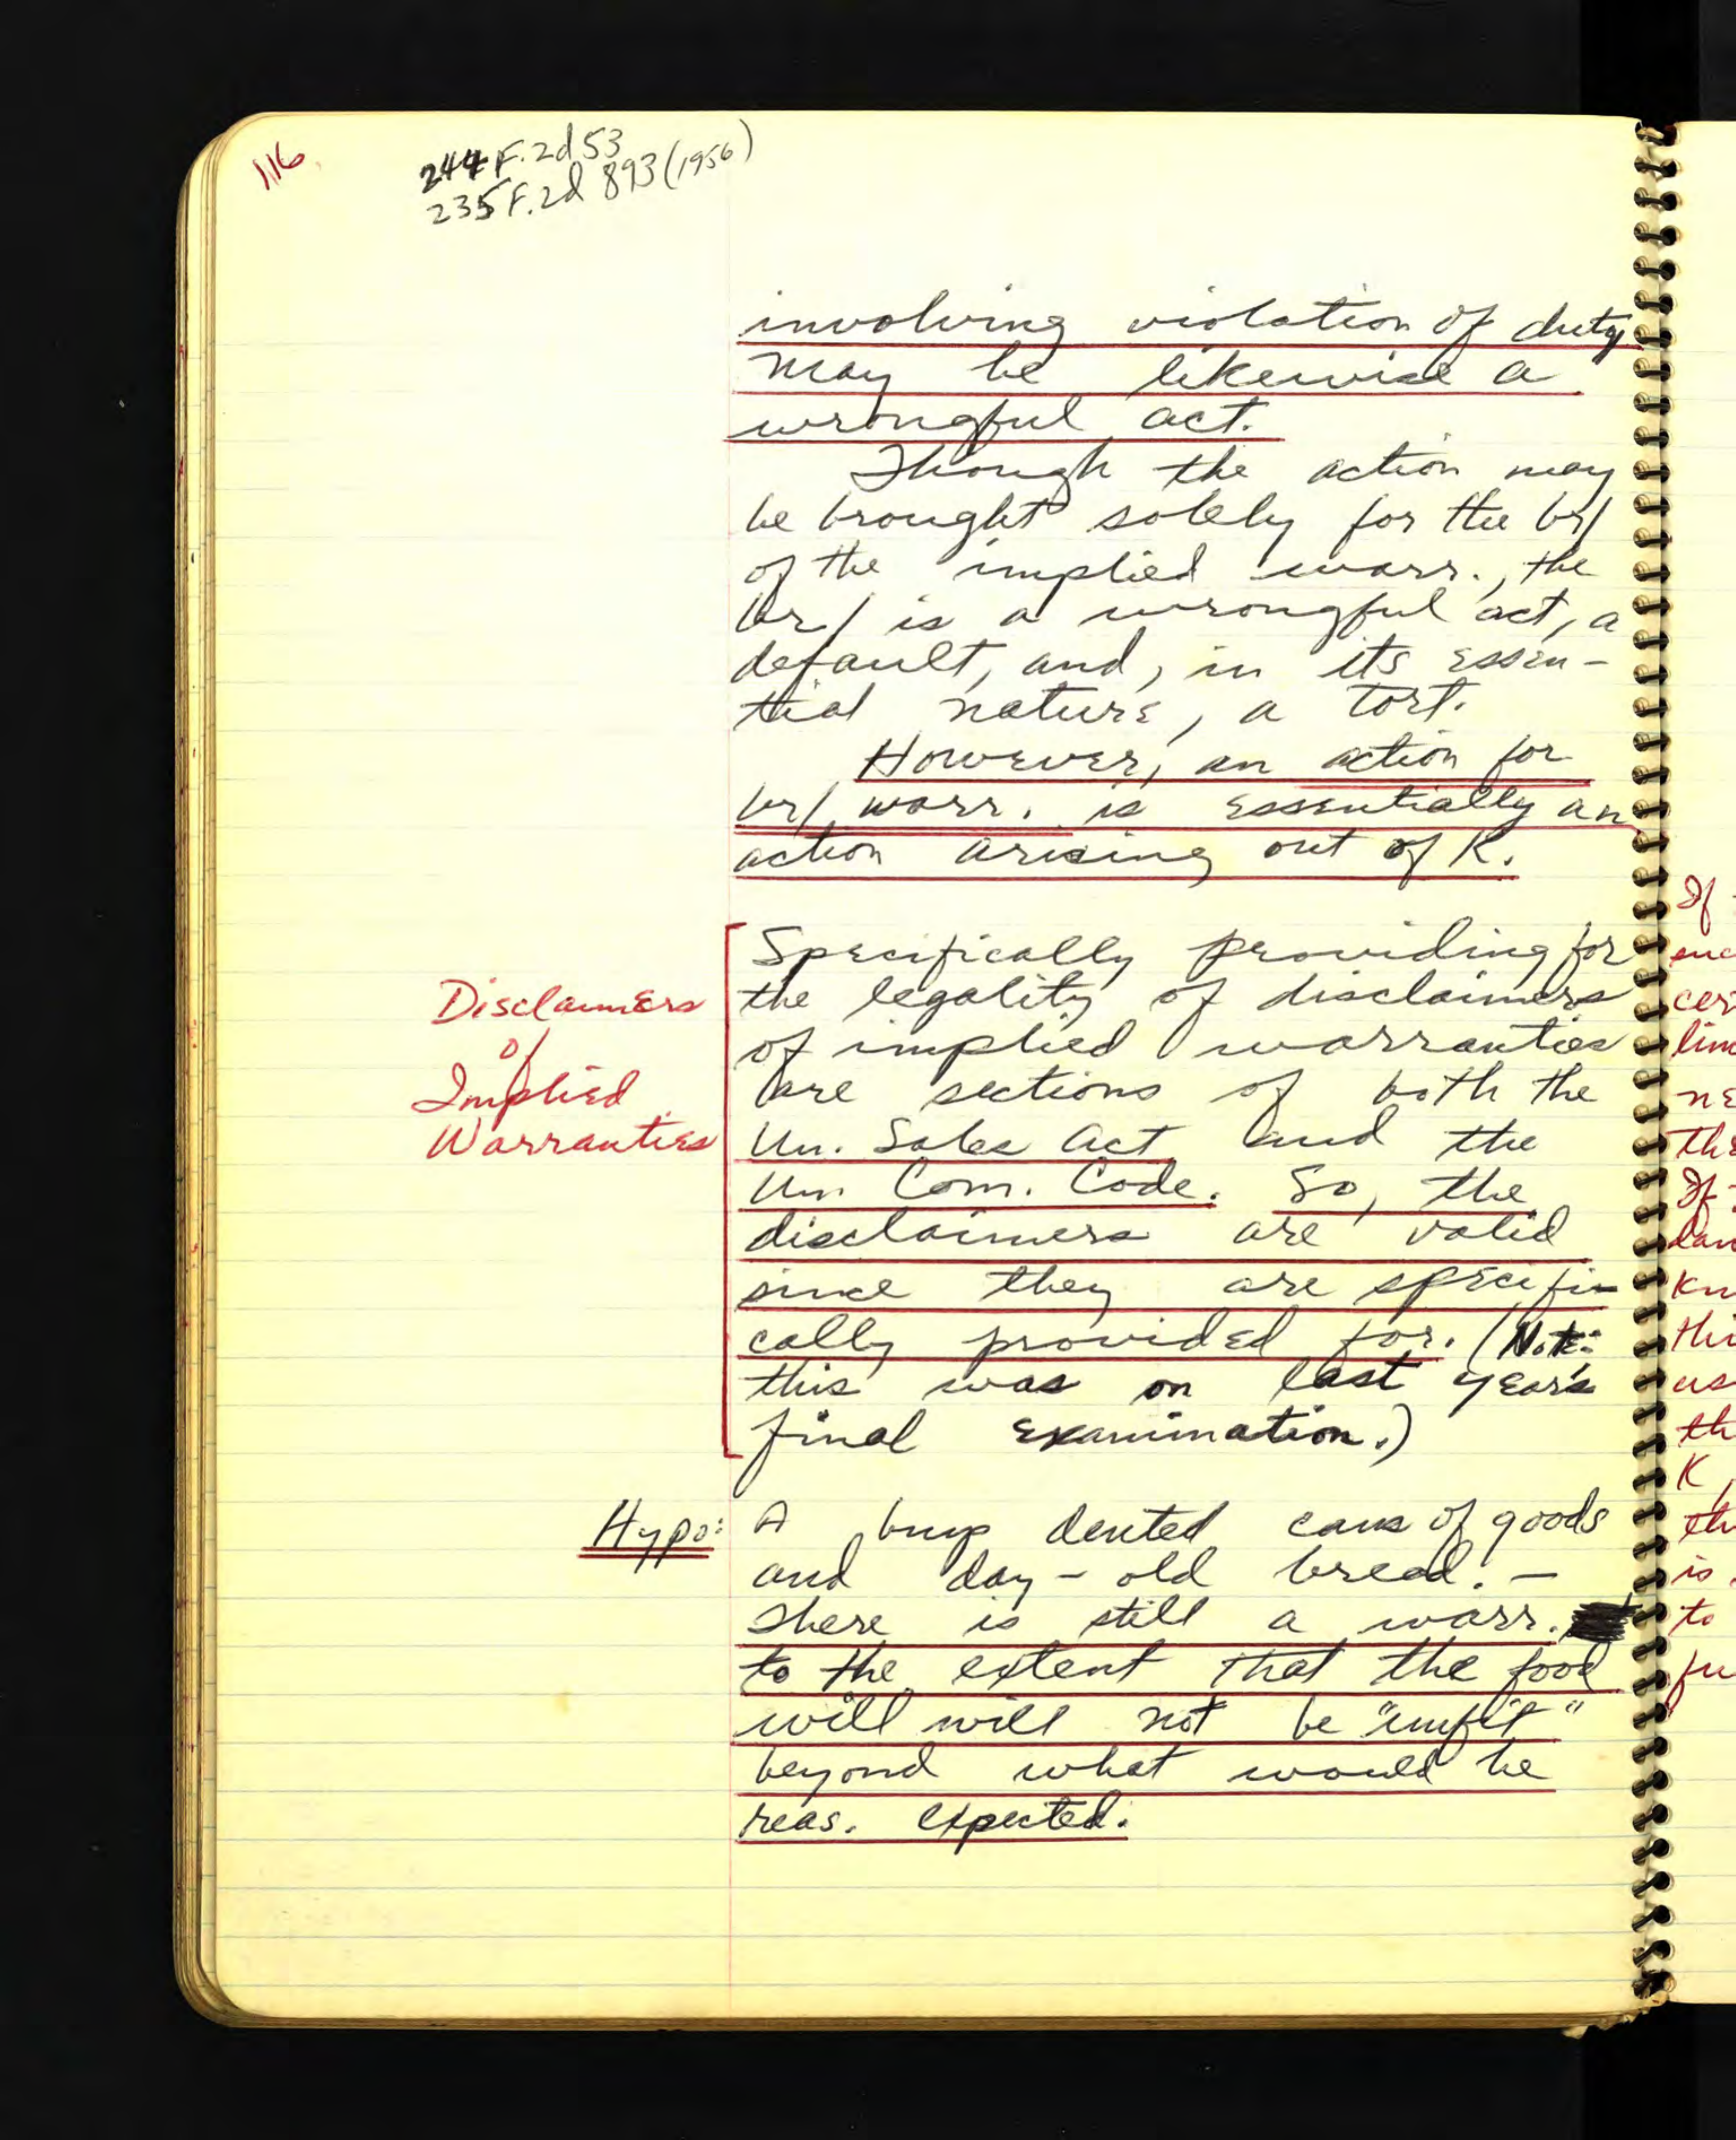 116
244 F.2d 53
235 F.2d 893 (1956)
involving violation of duty
may be likewise a
wrongful act.
Though the action may
be brought solely for the br/
of the implied warr., the
br/ is a wrongful act, a
default, and, in its essen-
tial nature, a tort.
However, an action for
br/ warr. is essentially an
action arising out of K.
Disclaimers
of
Implied
Warranties
Specifically providing for
the legality of disclaimers
of implied warranties
are sections of both the
Un. Sales Act and the
Un. Com. Code. So, the
disclaimers are valid
since they are specifi-
cally provided for. (Note:
this was on last year's
final examination.)
Hypo:
A buys dented cans of goods
and day-old bread. -
There is still a warr.
to the extent that the food
will will not be "unfit"
beyond what would be
reas. expected.
If
cer
lim
ne
the
If
dam
kn
thi
as
th
K,
th
is
to
fu